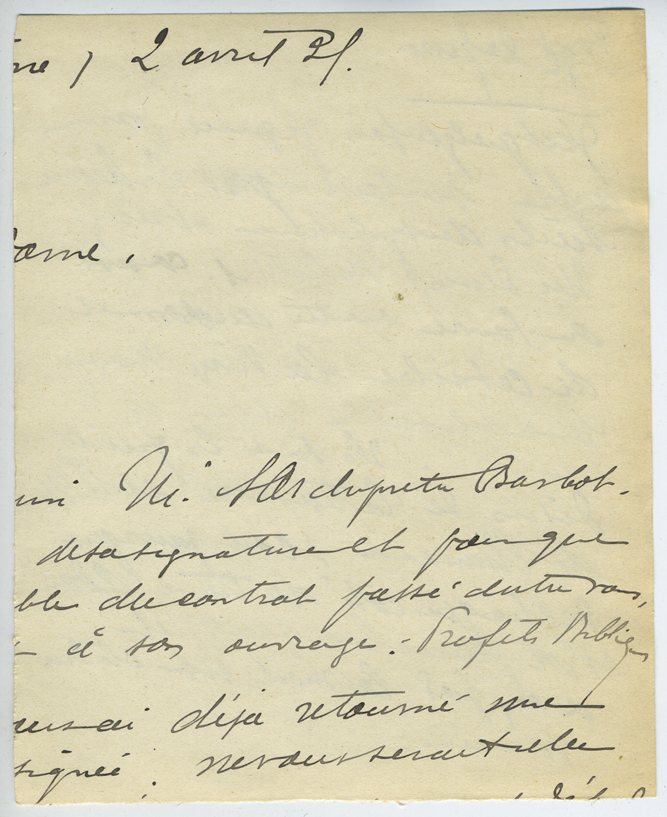 me, 2 avril 21.
ame,
M. l'Archiprêtre Barbot.
de sa signature et pour que
ble du contrat passé entre vous,
à son ouvrage : Profils Bibliques
vous ai déjà retourné une
signée. ne vous serait-elle